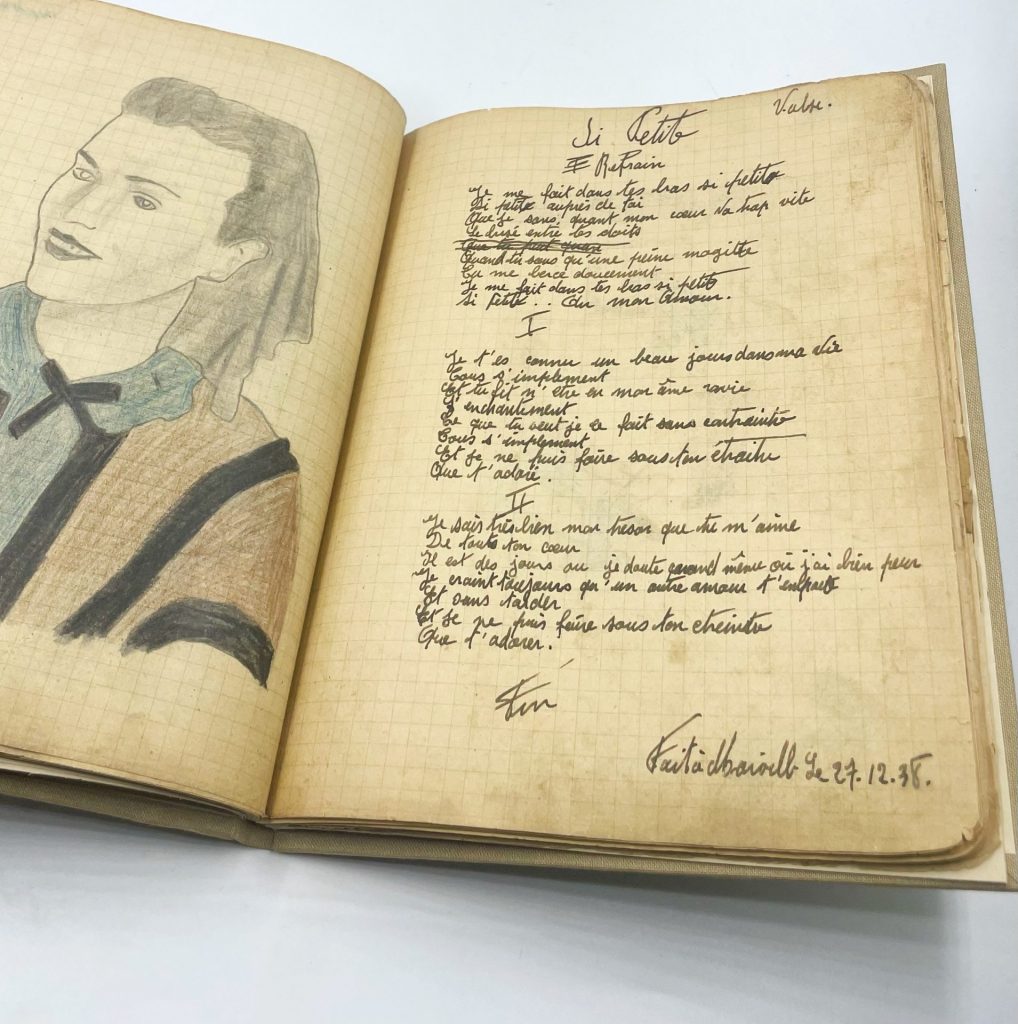 Si Petite
Valse.
Refrain
Je me fait dans tes bras si petite
Si petite auprès de toi
Que je sans quant mon cœur va trop vite
entre tes doits
Quand tu sans qu'une peine magitte
Tu me berce doucement
Je me fait dans tes bras si petite
si petite .. Ou mon Amour.
I
Je t'es connu un beau jours dans ma vie
Tous s'implement
Et tu fit n'etre en mon âme ravie
L'enchantement
Ce que tu veut je le fait sans contrainte
Tous s'implement
Et je ne puis faire sous ton étrainte
Que t'adoré.
II
Je sais très bien mon tresor que tu m'aime
De toute ton cœur
Il est des jours ou je doute quand même où j'ai bien peur
Je craint toujours qu'un autre amour t'emporte
Et sans tarder
Et je ne puis faire sous ton etreinte
Que t'adorer.
Fin
Fait à Le 27.12.38.